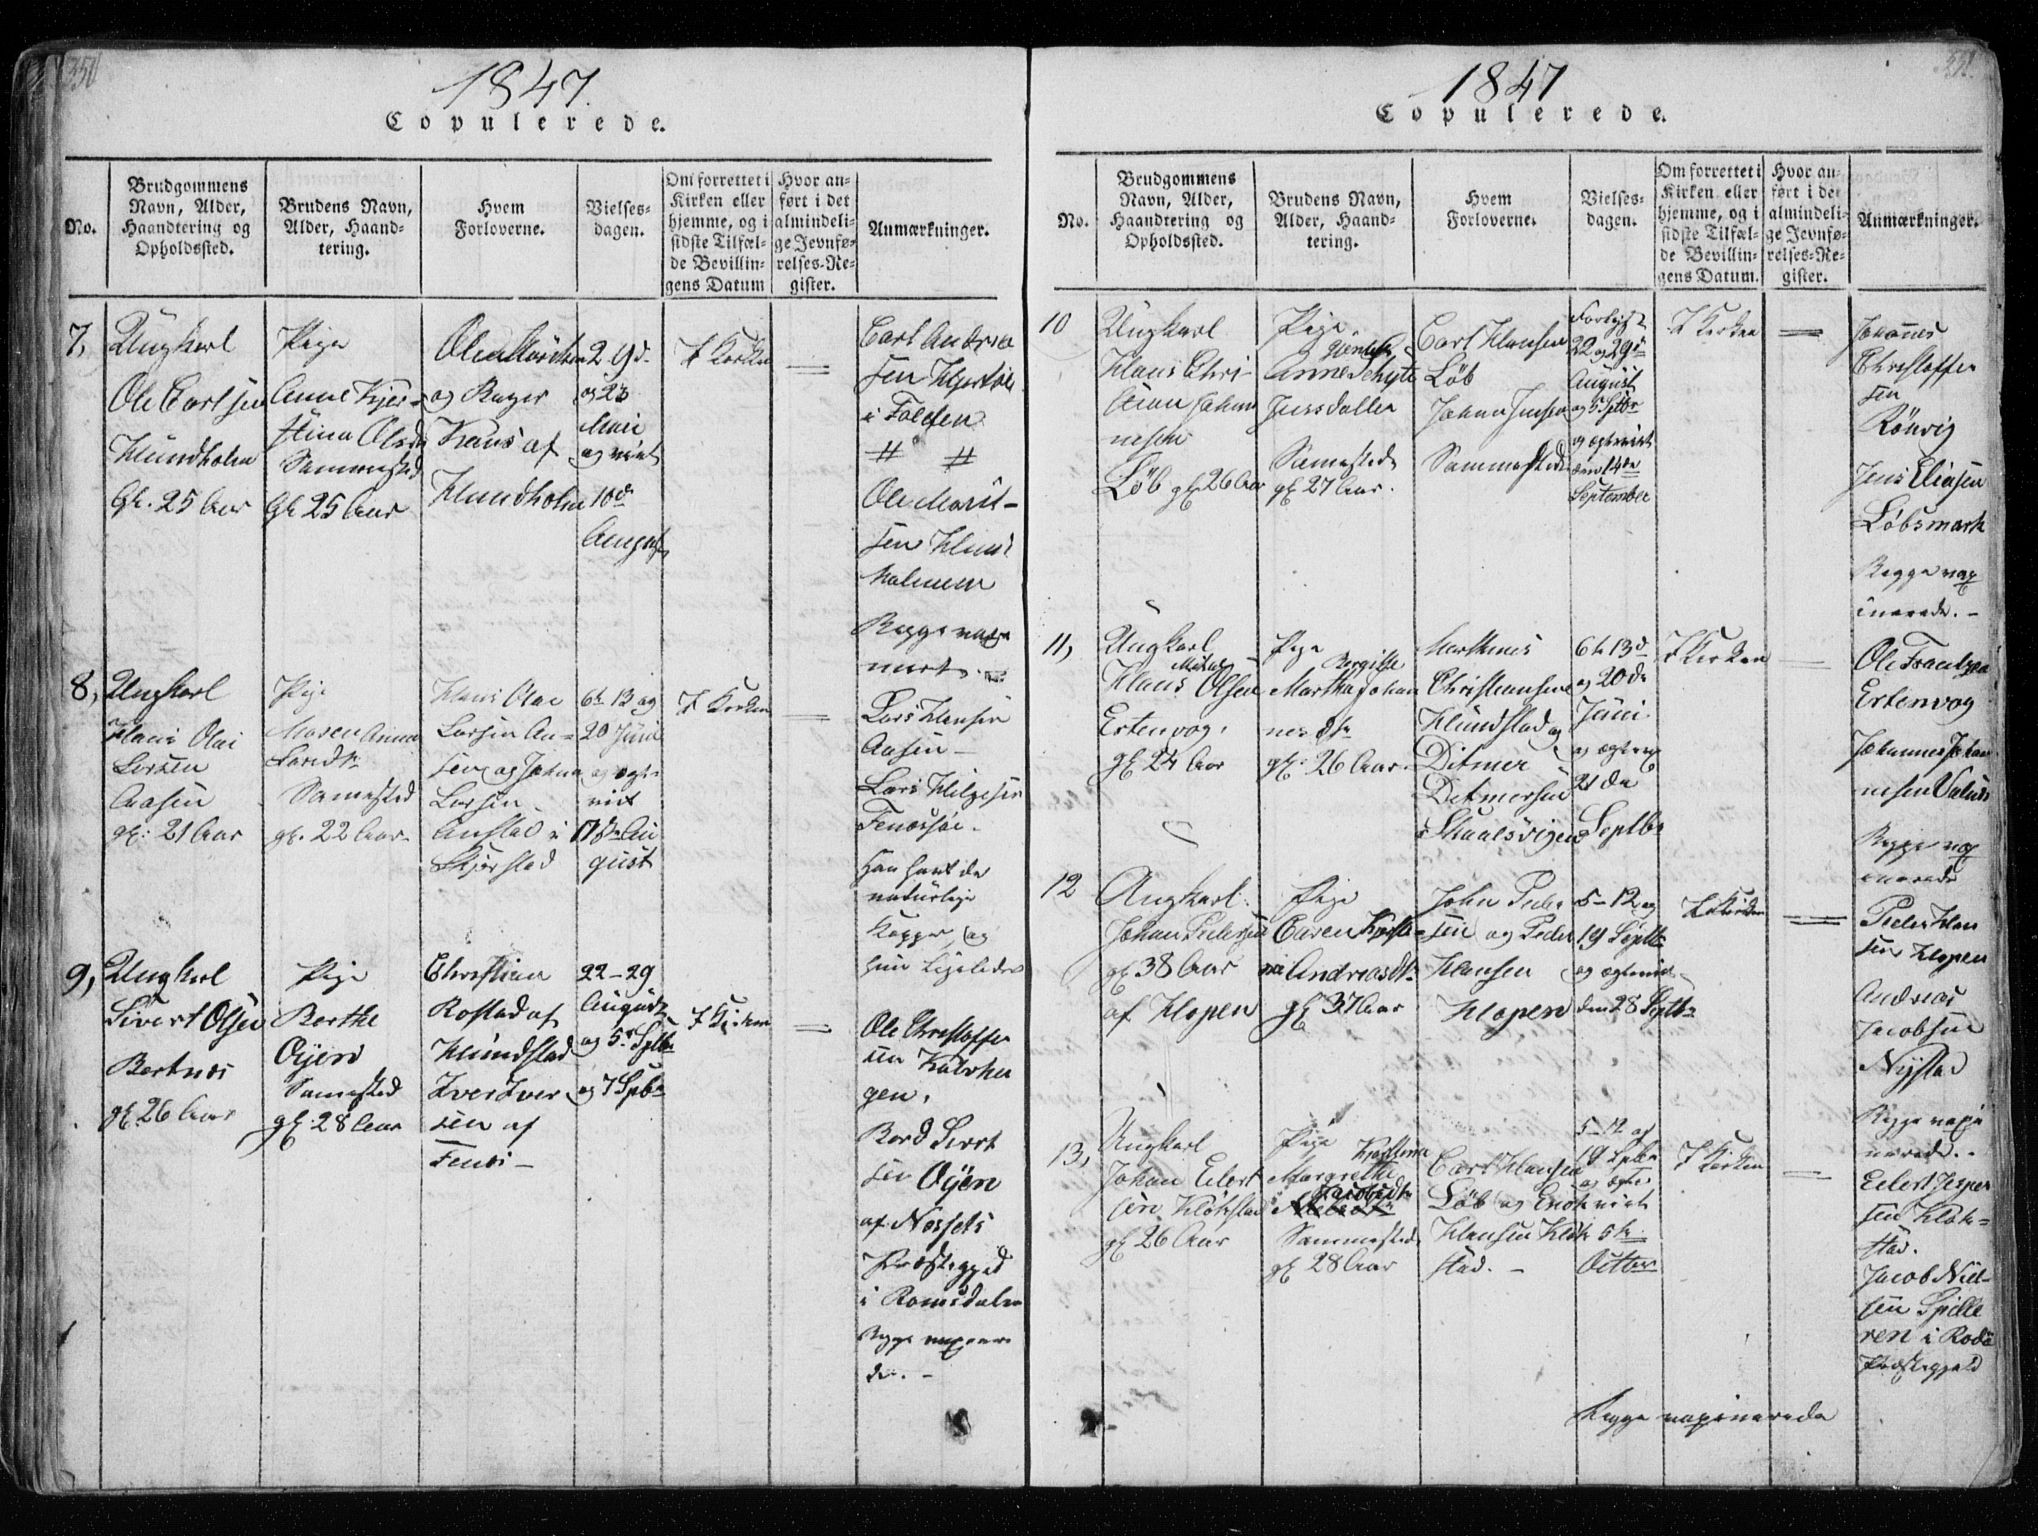 350
1847.
Copulerede.
No.
Brudgommens
Navn, Alder,
Haandtering og
Opholdssted.
Brudens Navn,
Alder, Haand-
tering.
Hvem
Forloverne.
Vielses-
dagen.
Om forrettet i
Kirken eller
hjemme, og i
sidste Tilfæl-
de Bevillin-
gens Datum
Hvor an-
ført i det
almindeli-
ge Jevnfø-
relses-Re-
gister.
Anmærkninger.
7,
Ungkarl
Ole Carlsen
Klundholm
Gl. 25 Aar
Pige
Anne Kjer-
stina Olsdr
Sammested
Gl 25 Aar
og
Hans af
Klundholm
2 9d
og 23
Maii
og viet
10de
August
I Kirken
Carl Andrea
sen
i Folden
Ole Morit-
sen Klund
holmen
8,
Ungkarl
Hans Olai
Larsen
Aasen
gl: 21 Aar
Pige
Maren Anna
Larsdtr
Samested
gl. 22 Aar
Hans Olai
Larsen An-
sen og Johan
Larsen
i
Skjerstad
6te 13 og
20 Juni
og ægte
viet
17de Au
gust
I Kirken
Lars Hansen
Aasen
Lars
han havt de
naturlige
Kopper, og
hun ligeledes
9,
Ungkarl
Sivert Olsen
Bertnes
gl. 26 Aar
Pige
Berthe
Øyen
Samested
gl: 28 Aar
Christian
Rostad af
Klundstad
Iver Iver
sen af
22-29
August
og 5te Sptbr
og 7 Spbr
I Kirken
Ole Christoffer
sen
gen.
Bord Sivert
sen Øyen
af Nessets
Præstegjeld
i Romsdalen
Begge vaxinere
de. -
351.
1847
Copulerede.
No.
Brudgommens
Navn, Alder,
Haandtering og
Opholdssted.
Brudens Navn,
Alder, Haand-
tering.
Hvem
Forloverne.
Vielses-
dagen.
Om forrettet i
Kirken eller
hjemme, og i
sidste Tilfæl-
de Bevillin-
gens Datum.
Hvor an-
ført i det
almindeli-
ge Jevnfø-
relses-Re-
gister.
Anmærkninger.
10
Ungkarl
Hans Chri-
stian Johan
nesen
Løb gl 26 Aar
Pige
Anne
Jensdatter
Samested
gl 27 Aar.
Carl Hansen
Løb
Johan Jensen
Sammested
22 og 29de
August
og 5 Sptbr
og ægteviet
den 14de
September
I Kirken
Johannes
Christoffer
sen
Rønvig
Jens Eliasen
Løbsmark
Begge vax
inerede. -
11,
Ungkarl
Hans Olsen
Ertenvog.
gl 24 Aar
Pige
Birgitte
Martha Johan
nesdtr
gl. 26 Aar
Marthinus
Christiansen
Klundstad og
Ditmer
Ditmersen
Skaalsvigen
6te 13de
og 20de
Juni
21de
Septbr
I Kirken
Ole Frantzen
Ertenvog
Johannes Johan
nesen
Begge vax
inerede
12
Ungkarl.
Johan Pedersen
gl 38 Aar
af Klopen
Pige
Caren
Andreasdtr
gl 37 Aar
John Peder
sen og Peder
Hansen
Klopen
5-12 og
19 Septbr
og ægteviet
den 28 Septbr
I Kirken
Peder Han
sen Klopen
Andreas
Jacobsen
Nystad
Begge vaxi
nerede. -
13,
Ungkarl
Johan Eilert
sen Kløkstad
gl 26 Aar
Pige
Margrethe
Jacobsdtr
Sammested
gl 28 Aar
Carl Hansen
Løb og Enok
Hansen Kløk
stad. -
5-12 og
19 Sptbr
og ægte
viet
5te
Octbr
I Kirken
Eilert Jesper
sen Kløk-
stad.
Jacob Niel-
sen Spille
ren i Rødø
Præstegjeld
Begge vaxinerede